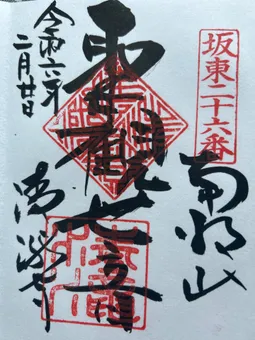 坂東二十六番
南明山
聖観世音
令和六年
二月廿日
清瀧寺